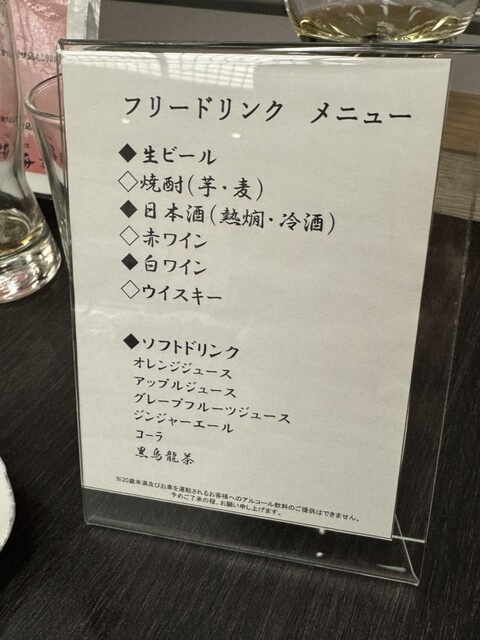 フリードリンク　メニュー
◆生ビール
◇焼酎(芋・麦)
◆日本酒(熱燗・冷酒)
◇赤ワイン
◆白ワイン
◇ウイスキー
◆ソフトドリンク
オレンジジュース
アップルジュース
グレープフルーツジュース
ジンジャーエール
コーラ
黒烏龍茶
※20歳未満及びお車を運転されるお客様へのアルコール飲料のご提供はできません。
予めご了承の程、お願い申し上げます。